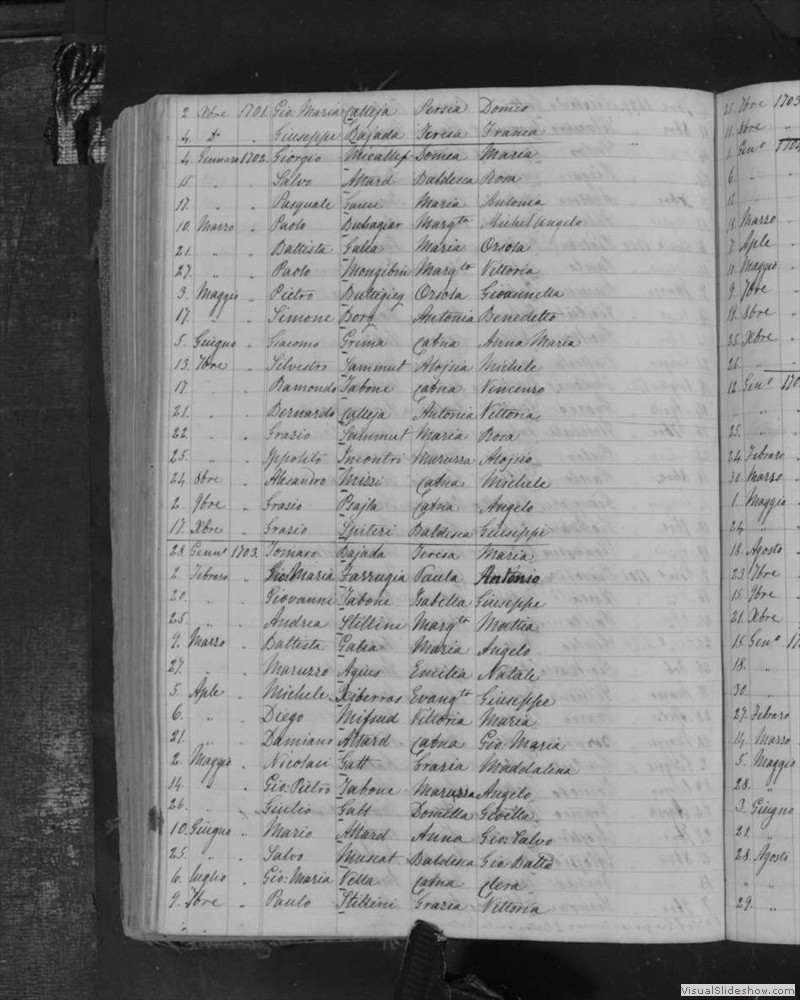 2 Xbre 1701 Gio: Maria Calleja Persia Domco
4 Do Giuseppe Bajada Teresa Franca
4 Gennaro 1702 Giorgio Micallef Domca Maria
15 " " Salvo Attard Baldesca Rosa
17 " " Pasquale Gauci Maria Antonia
10 Marzo " Paolo Buhagiar Margta Michel'Angelo
21 " " Battista Galea Maria Orsola
27 " " Paolo Mongibini Margta Vittoria
3 Maggio " Pietro Buttigieg Orsola Gioannella
17 " " Simone Borg Antonia Benedetto
5 Giugno " Giacomo Grima Catna Anna Maria
13 7bre " Silvestro Sammut Aloisia Michele
17 " " Raimondo Tabone Catna Vincenzo
21 " " Bernardo Calleja Antonia Vittoria
22 " " Grazio Sammut Maria Rosa
25 " " Ippolito Incontri Maruzza Aloisio
24 8bre " Alesandro Mizzi Catna Michele
2 9bre " Grazio Psajla Catna Angelo
17 Xbre " Grazio Spiteri Baldesca Giuseppe
28 Gennº 1703 Tomaso Bajada Teresa Maria
2 Febraro " Gio: Maria Farrugia Paula Antonio
20 " " Giovanni Tabone Isabella Giuseppe
25 " " Andrea Stellini Margta Mattia
9 Marzo " Battista Galia Maria Angelo
27 " " Maruzzo Agius Emilia Natale
5 Aple " Michele Xiberras Evangta Giuseppe
6 " " Diego Mifsud Vittoria Maria
21 " " Damiano Attard Catna Gio: Maria
2 Maggio " Nicolaci Gatt Grazia Maddalena
14 " " Gio: Pietro Tabone Maruzza Angelo
26 " " Giulio Gatt Domella Gioella
10 Giugno " Mario Attard Anna Gio: Salvo
25 " " Salvo Muscat Baldesca Gio Batta
6 Luglio " Gio: Maria Vella Catna Clera
9 7bre " Paulo Stellini Grazia Vittoria
25 7bre 1703
11 8bre "
1 Genº 1704
6 "
12 "
18 Marzo "
7 Aple "
11 Maggio "
9 7bre "
19 8bre "
25 Xbre "
26 "
12 Genº 170
" "
25 "
24 Febraro
30 Marzo
1 Maggio
24 "
18 Agosto
23 7bre
15 9bre
21 Xbre
15 Genº 17
18 "
30 "
27 Febraro
14 Marzo
5 Maggio
28 "
3 Giugno
21 "
28 Agosto
" "
29 "
VisualSlideshow.com